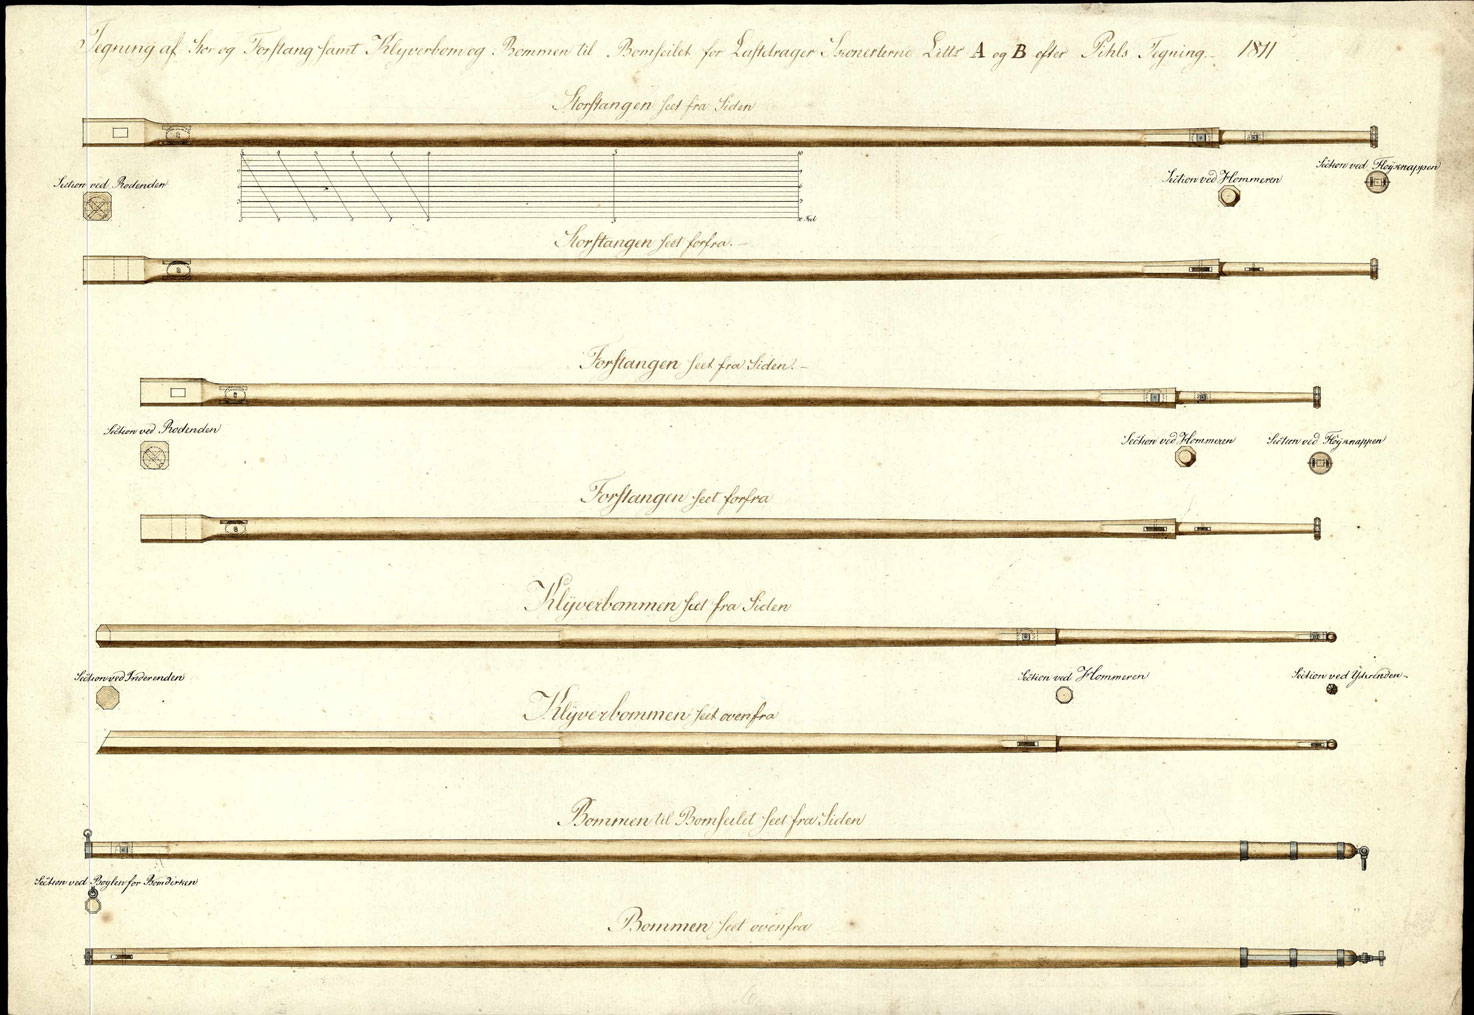 Tegning af Stor og Forstang samt Klyverbom og Bommen til Bomseilet for Lastdrager Skonerterne Littr A og B efter Pihls Tegning.- 1811
Storstangen seet fra Siden
Section ved Rodenden
Section ved Hommeren
Section ved Fløyknappen
Storstangen seet forfra.-
Forstangen seet fra Siden.-
Section ved Rodenden
Section ved Hommeren
Section ved Fløyknappen
Forstangen seet forfra
Klÿverbommen seet fra Siden
Section ved Inderenden
Section ved Hommeren
Section ved Yterenden-
Klÿverbommen seet ovenfra
Bommen til Bomseilet seet fra Siden
Section ved Bøylen for Bomdirken
Bommen seet ovenfra